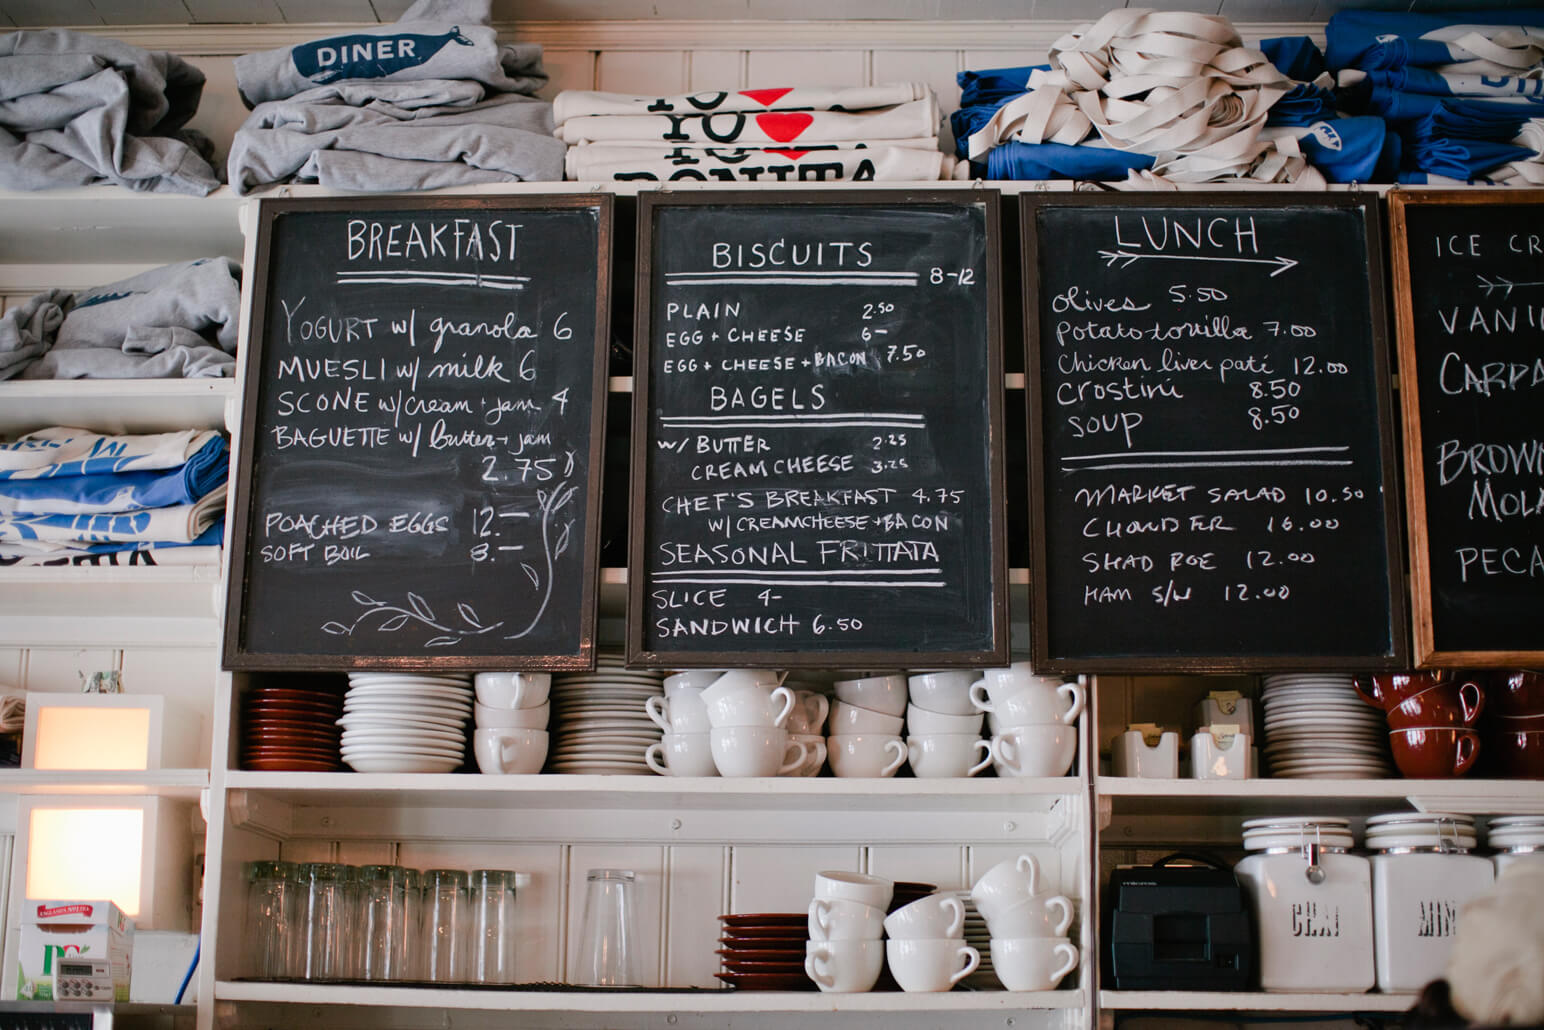 DINER
BONITA
BREAKFAST
YOGURT w/ granola 6
MUESLI w/ milk 6
SCONE w/ cream + jam 4
BAGUETTE w/ butter + jam
2.75
POACHED EGGS 12.—
SOFT BOIL 8.—
BISCUITS
8-12
PLAIN 2.50
EGG + CHEESE 6—
EGG + CHEESE + BACON 7.50
BAGELS
w/ BUTTER 2.25
CREAM CHEESE 3.25
CHEF'S BREAKFAST 4.75
W/ CREAMCHEESE + BACON
SEASONAL FRITTATA
SLICE 4-
SANDWICH 6.50
LUNCH
olives 5.50
potato tortilla 7.00
Chicken liver paté 12.00
crostini 8.50
soup 8.50
MARKET SALAD 10.50
CHOWDER 16.00
SHAD ROE 12.00
HAM S/W 12.00
ICE CR
VANI
CARDA
BROWN
MOLA
PECA
micros
CHAI
MIN